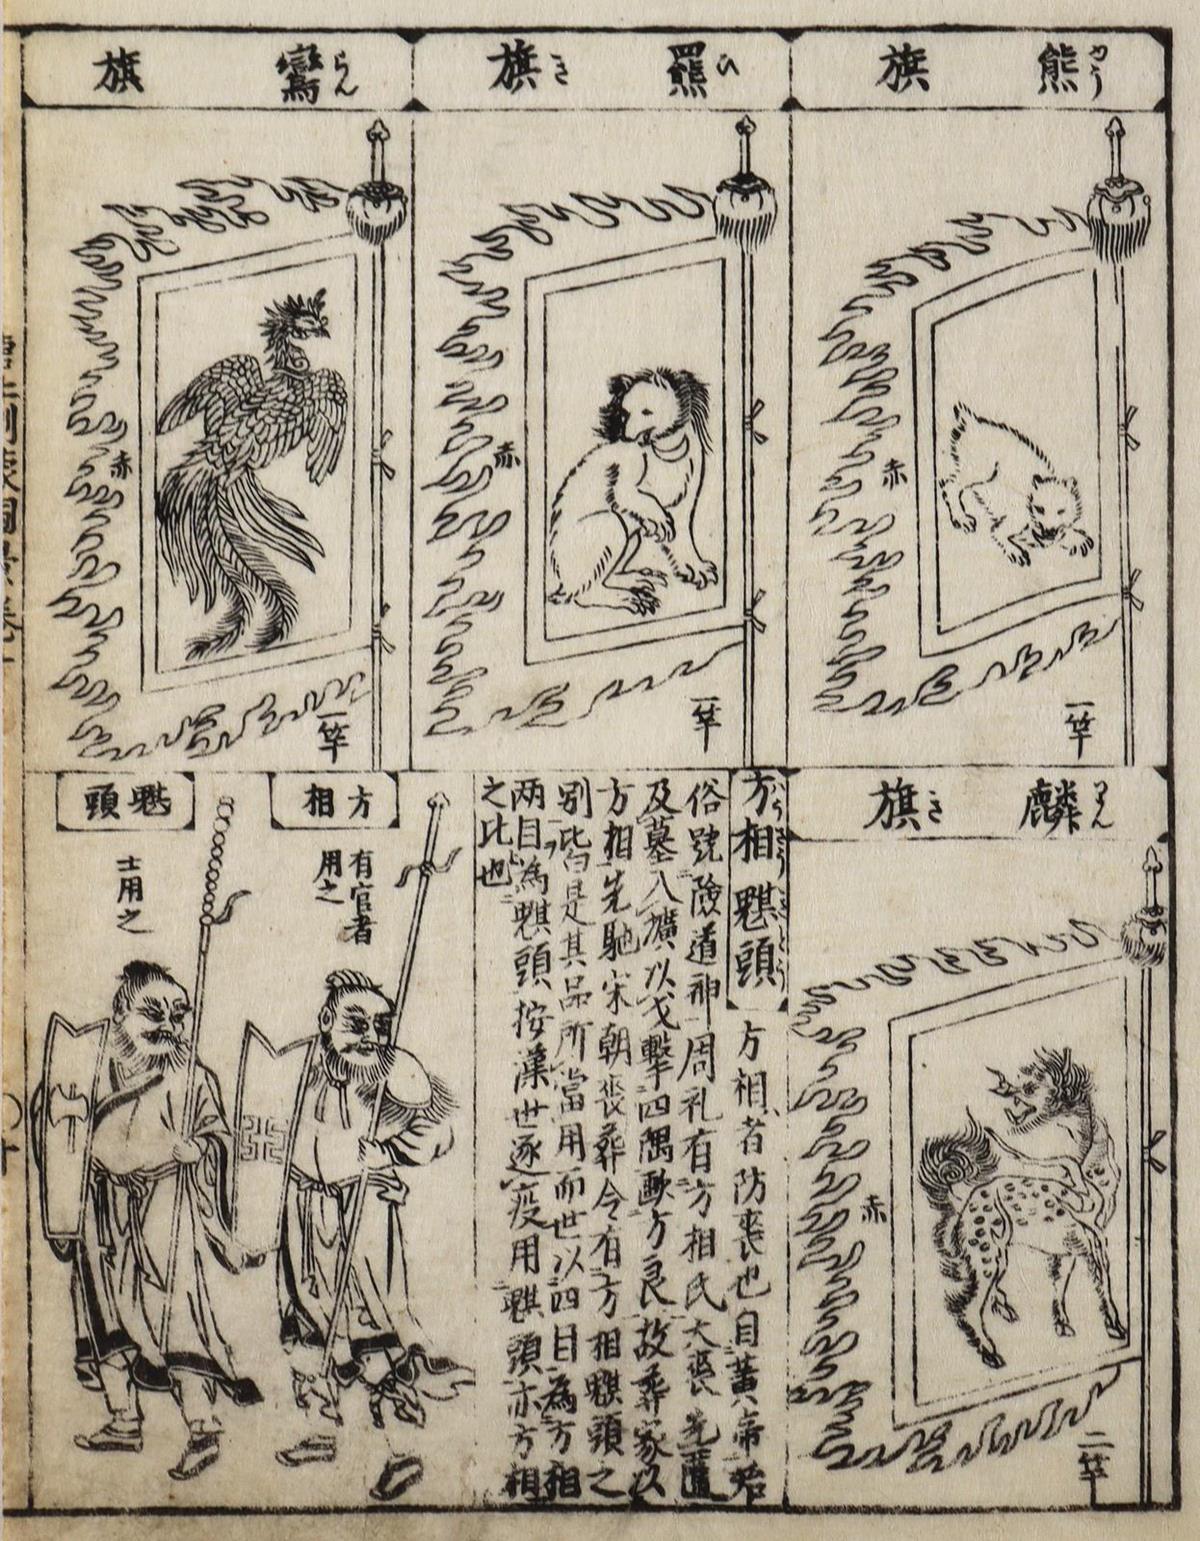 熊 旗
やう
赤
一竿
羆 旗
ひ き
赤
一竿
鸞 旗
らん
赤
一竿
麟 旗
りん き
赤
二竿
方相 魌頭
方相者防喪也自黃帝始
俗號險道神周礼有方相氏大喪先匶
及墓入壙以戈擊四隅敺方良故葬家以
方相先馳宋朝喪葬令有方相魌頭之
別此皆是其品所當用而世以四目為方相
両目為魌頭按漢世逐疫用魌頭亦方相
之比也
方相
有官者
用之
魌頭
士用之